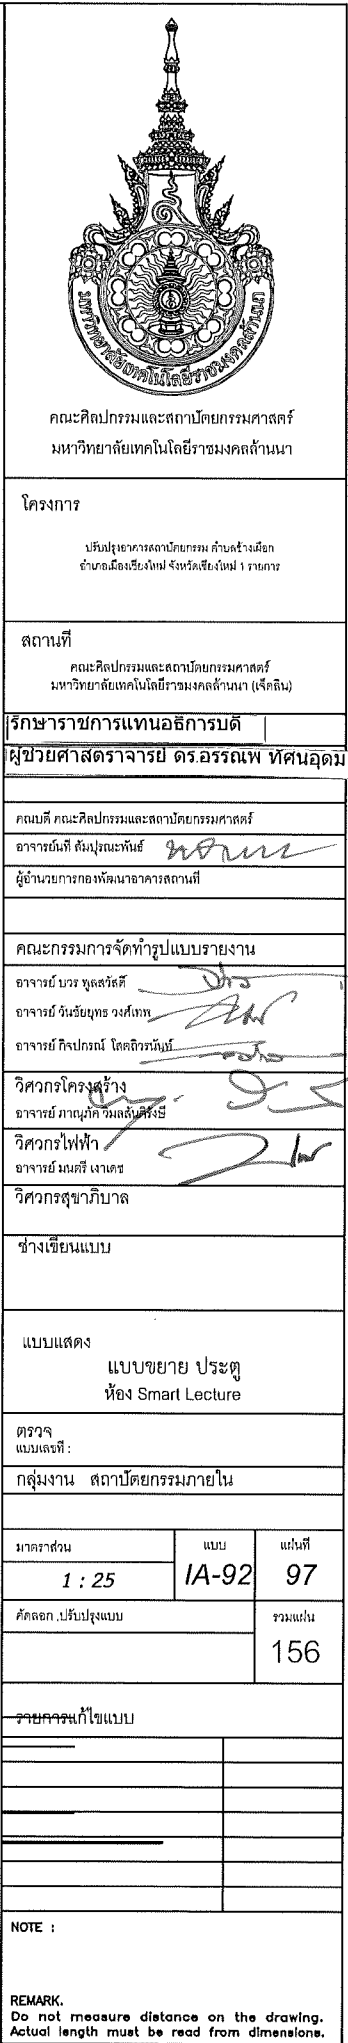 มหาวิทยาลัยเทคโนโลยีราชมงคลล้านนา
คณะศิลปกรรมและสถาปัตยกรรมศาสตร์
มหาวิทยาลัยเทคโนโลยีราชมงคลล้านนา
โครงการ
ปรับปรุงอาคารสถาปัตยกรรม ตำบลช้างเผือก
อำเภอเมืองเชียงใหม่ จังหวัดเชียงใหม่ 1 รายการ
สถานที่
คณะศิลปกรรมและสถาปัตยกรรมศาสตร์
มหาวิทยาลัยเทคโนโลยีราชมงคลล้านนา (เจ็ดลิน)
รักษาราชการแทนอธิการบดี
ผู้ช่วยศาสตราจารย์ ดร.อรรณพ ทัศนอุดม
คณบดี คณะศิลปกรรมและสถาปัตยกรรมศาสตร์
อาจารย์นที สัมปุรณะพันธ์
ผู้อำนวยการกองพัฒนาอาคารสถานที่
คณะกรรมการจัดทำรูปแบบรายงาน
อาจารย์ บวร พูลสวัสดิ์
อาจารย์ วันชัยยุทธ วงศ์เทพ
อาจารย์ กิจปกรณ์
วิศวกรโครงสร้าง
อาจารย์ ภาณุภัค
วิศวกรไฟฟ้า
อาจารย์ มนตรี เงาเดช
วิศวกรสุขาภิบาล
ช่างเขียนแบบ
แบบแสดง
แบบขยาย ประตู
ห้อง Smart Lecture
ตรวจ
แบบเลขที่ :
กลุ่มงาน สถาปัตยกรรมภายใน
มาตราส่วน แบบ แผ่นที่
1 : 25 IA-92 97
คัดลอก ,ปรับปรุงแบบ รวมแผ่น
156
รายการแก้ไขแบบ
NOTE :
REMARK.
Do not measure distance on the drawing.
Actual length must be read from dimensions.